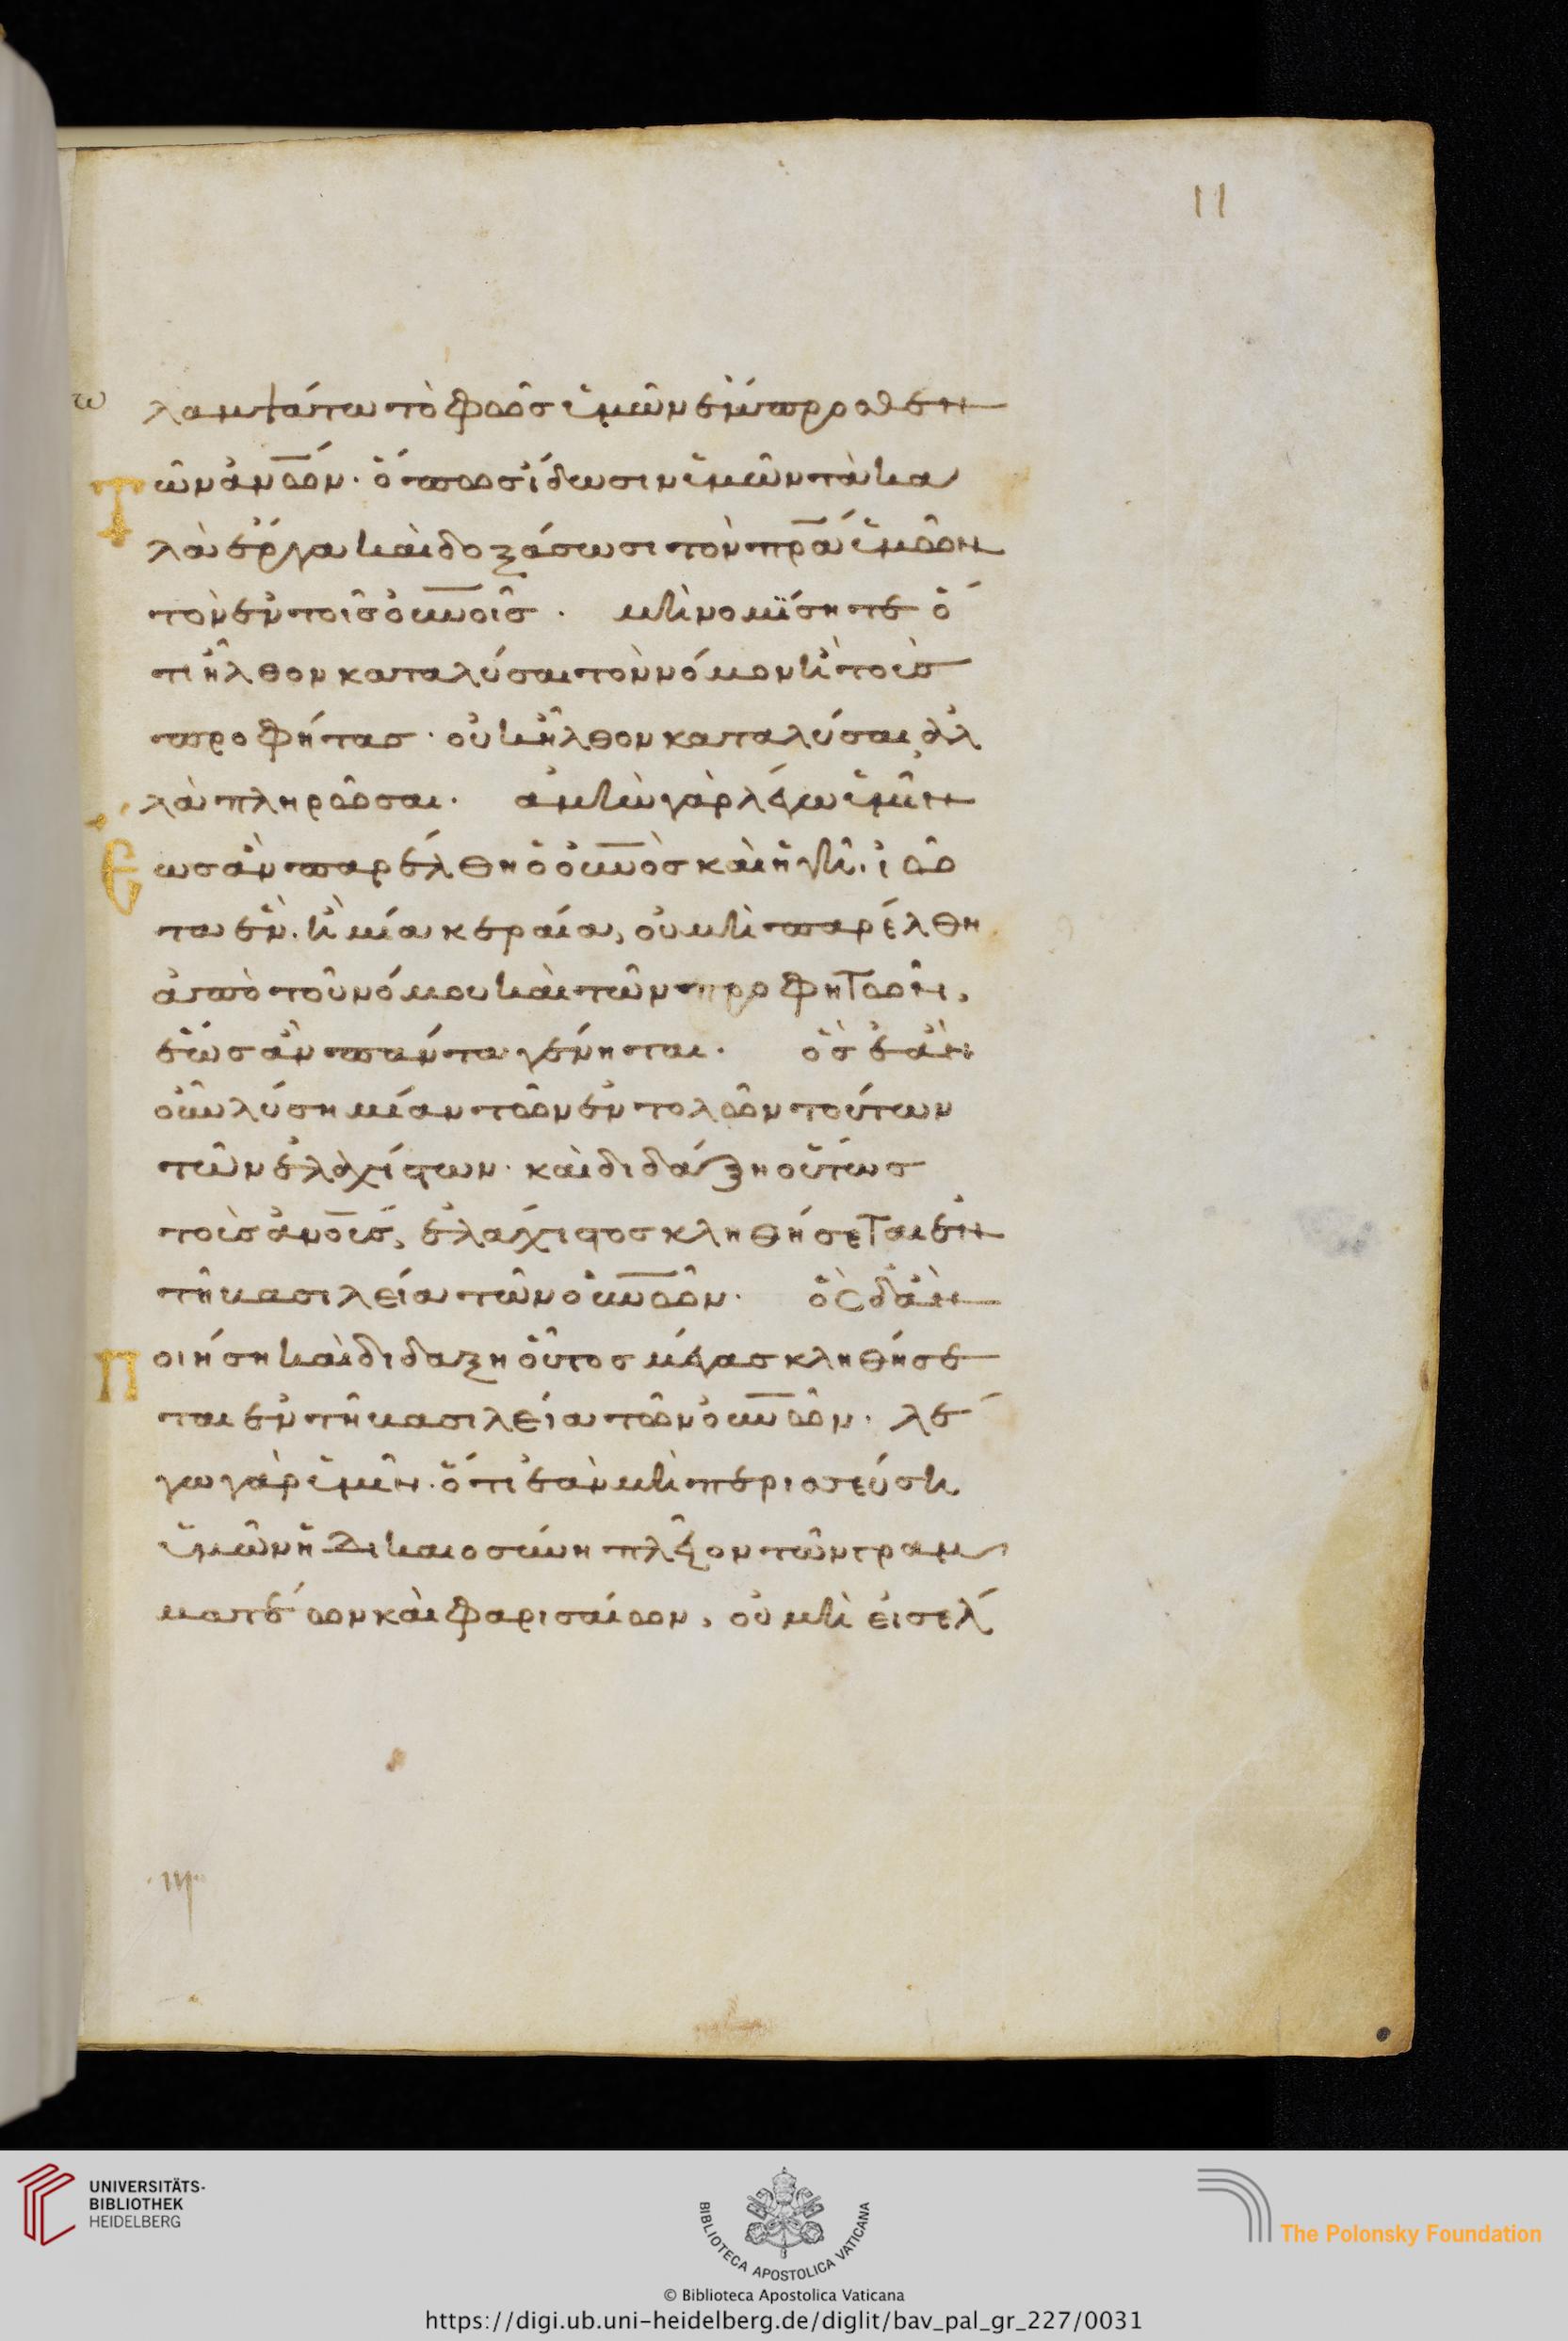 11
ω
λαμψάτω τὸ φῶσ ὑμῶν ἔμπροσθεν
Τῶν ἀνῶν· ὅπωσ ἴδωσιν ὑμῶν τὰ κα
λὰ ἔργα καὶ δοξάσωσι τὸν πρα ὑμῶν
τὸν ἐν τοῖσ οὐνοῖσ· μὴ νομίσητε ὅ
τι ἦλθον καταλύσαι τὸν νόμον ἢ τοὺσ
προφήτασ· οὐκ ἦλθον καταλύσαι, ἀλ
λὰ πληρῶσαι· ἀμὴν γὰρ λέγω ὑμῖν
Εωσ ἂν παρέλθη ὁ οὐνὸσ καὶ ἡ γῆ. ἰῶ
τα ἓν. ἢ μία κεραία, οὐ μὴ παρέλθη
ἀπὸ τοῦ νόμου καὶ τῶν προφητῶν,
ἕωσ ἂν πάντα γένηται· ὃσ ἐὰν
οὖν λύση μίαν τῶν ἐντολῶν τούτων
τῶν ἐλαχίστων· καὶ διδάξη οὕτωσ
τοὺσ ἀνουσ, ἐλάχιστοσ κληθήσεται ἐν
τῆ βασιλεία τῶν οὐνῶν· ὃσ δ' ἂν
Ποιήση καὶ διδαξη οὗτοσ μέγασ κληθήσε
ται ἐν τῆ βασιλεία τῶν οὐνῶν· λέ
γω γὰρ ὑμῖν· ὅτι ἐὰν μὴ περισσεύση
ὑμῶν ἡ δικαιοσύνη πλεῖον τῶν γραμ
ματέων καὶ φαρισαίων, οὐ μὴ εἰσέλ
UNIVERSITÄTS-
BIBLIOTHEK
HEIDELBERG
BIBLIOTECA APOSTOLICA VATICANA
The Polonsky Foundation
© Biblioteca Apostolica Vaticana
https://digi.ub.uni-heidelberg.de/diglit/bav_pal_gr_227/0031